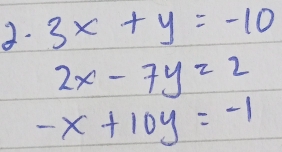 2. 3x + y = -10
2x - 7y = 2
-x + 10y = -1